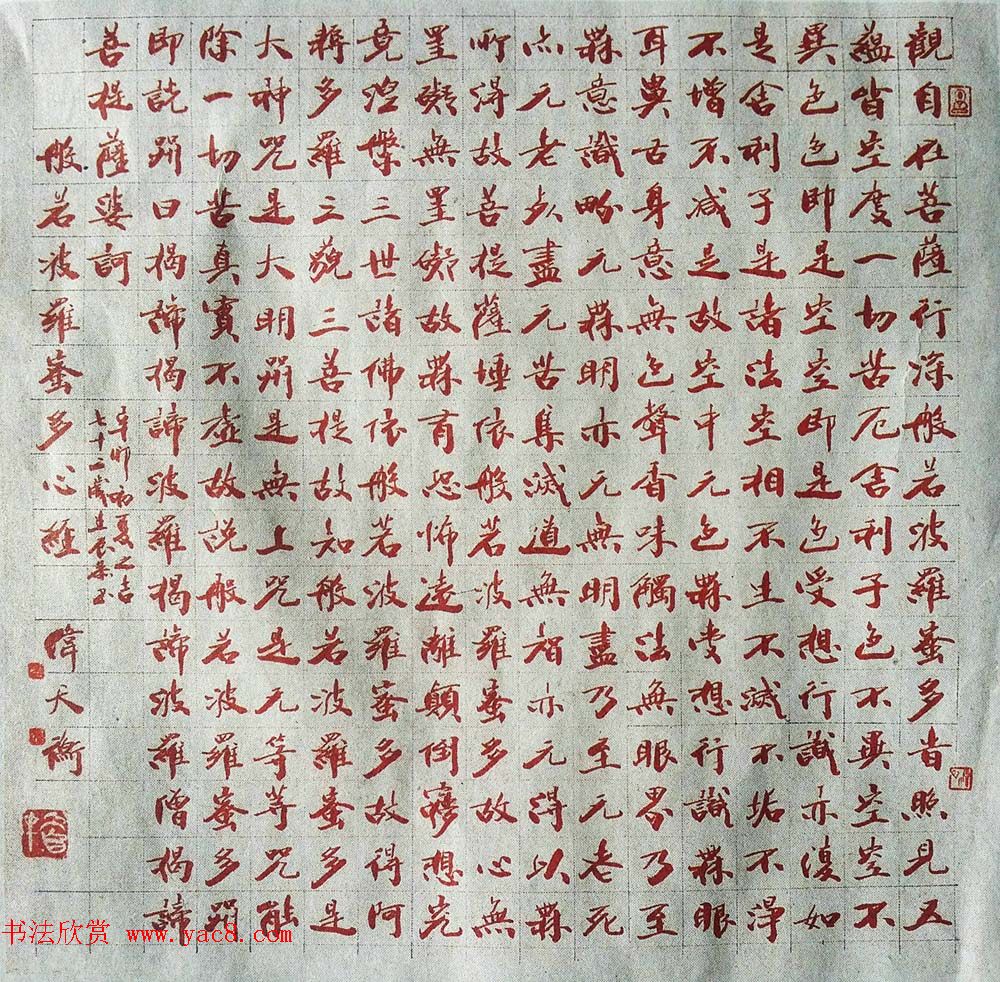 觀自在菩薩行深般若波羅蜜多旹照見五
蘊皆空度一切苦厄舍利子色不異空空不
異色色即是空空即是色受想行識亦復如
是舍利子是諸法空相不生不滅不垢不淨
不增不减是故空中无色無受想行識無眼
耳鼻舌身意無色聲香味觸法無眼界乃至
無意識界无無明亦无無明盡乃至无老死
亦无老死盡无苦集滅道無智亦无得以無
所得故菩提薩埵依般若波羅蜜多故心無
罣礙無罣礙故無有恐怖遠離顛倒夢想究
竟涅槃三世諸佛依般若波羅蜜多故得阿
耨多羅三藐三菩提故知般若波羅蜜多是
大神咒是大明咒是無上咒是无等等咒能
除一切苦真實不虛故說般若波羅蜜多咒
即說咒曰揭諦揭諦波羅揭諦波羅僧揭諦
菩提薩婆訶
辛卯初夏之吉
七十二歲
般若波羅蜜多心經
书法欣赏 www.yac8.com